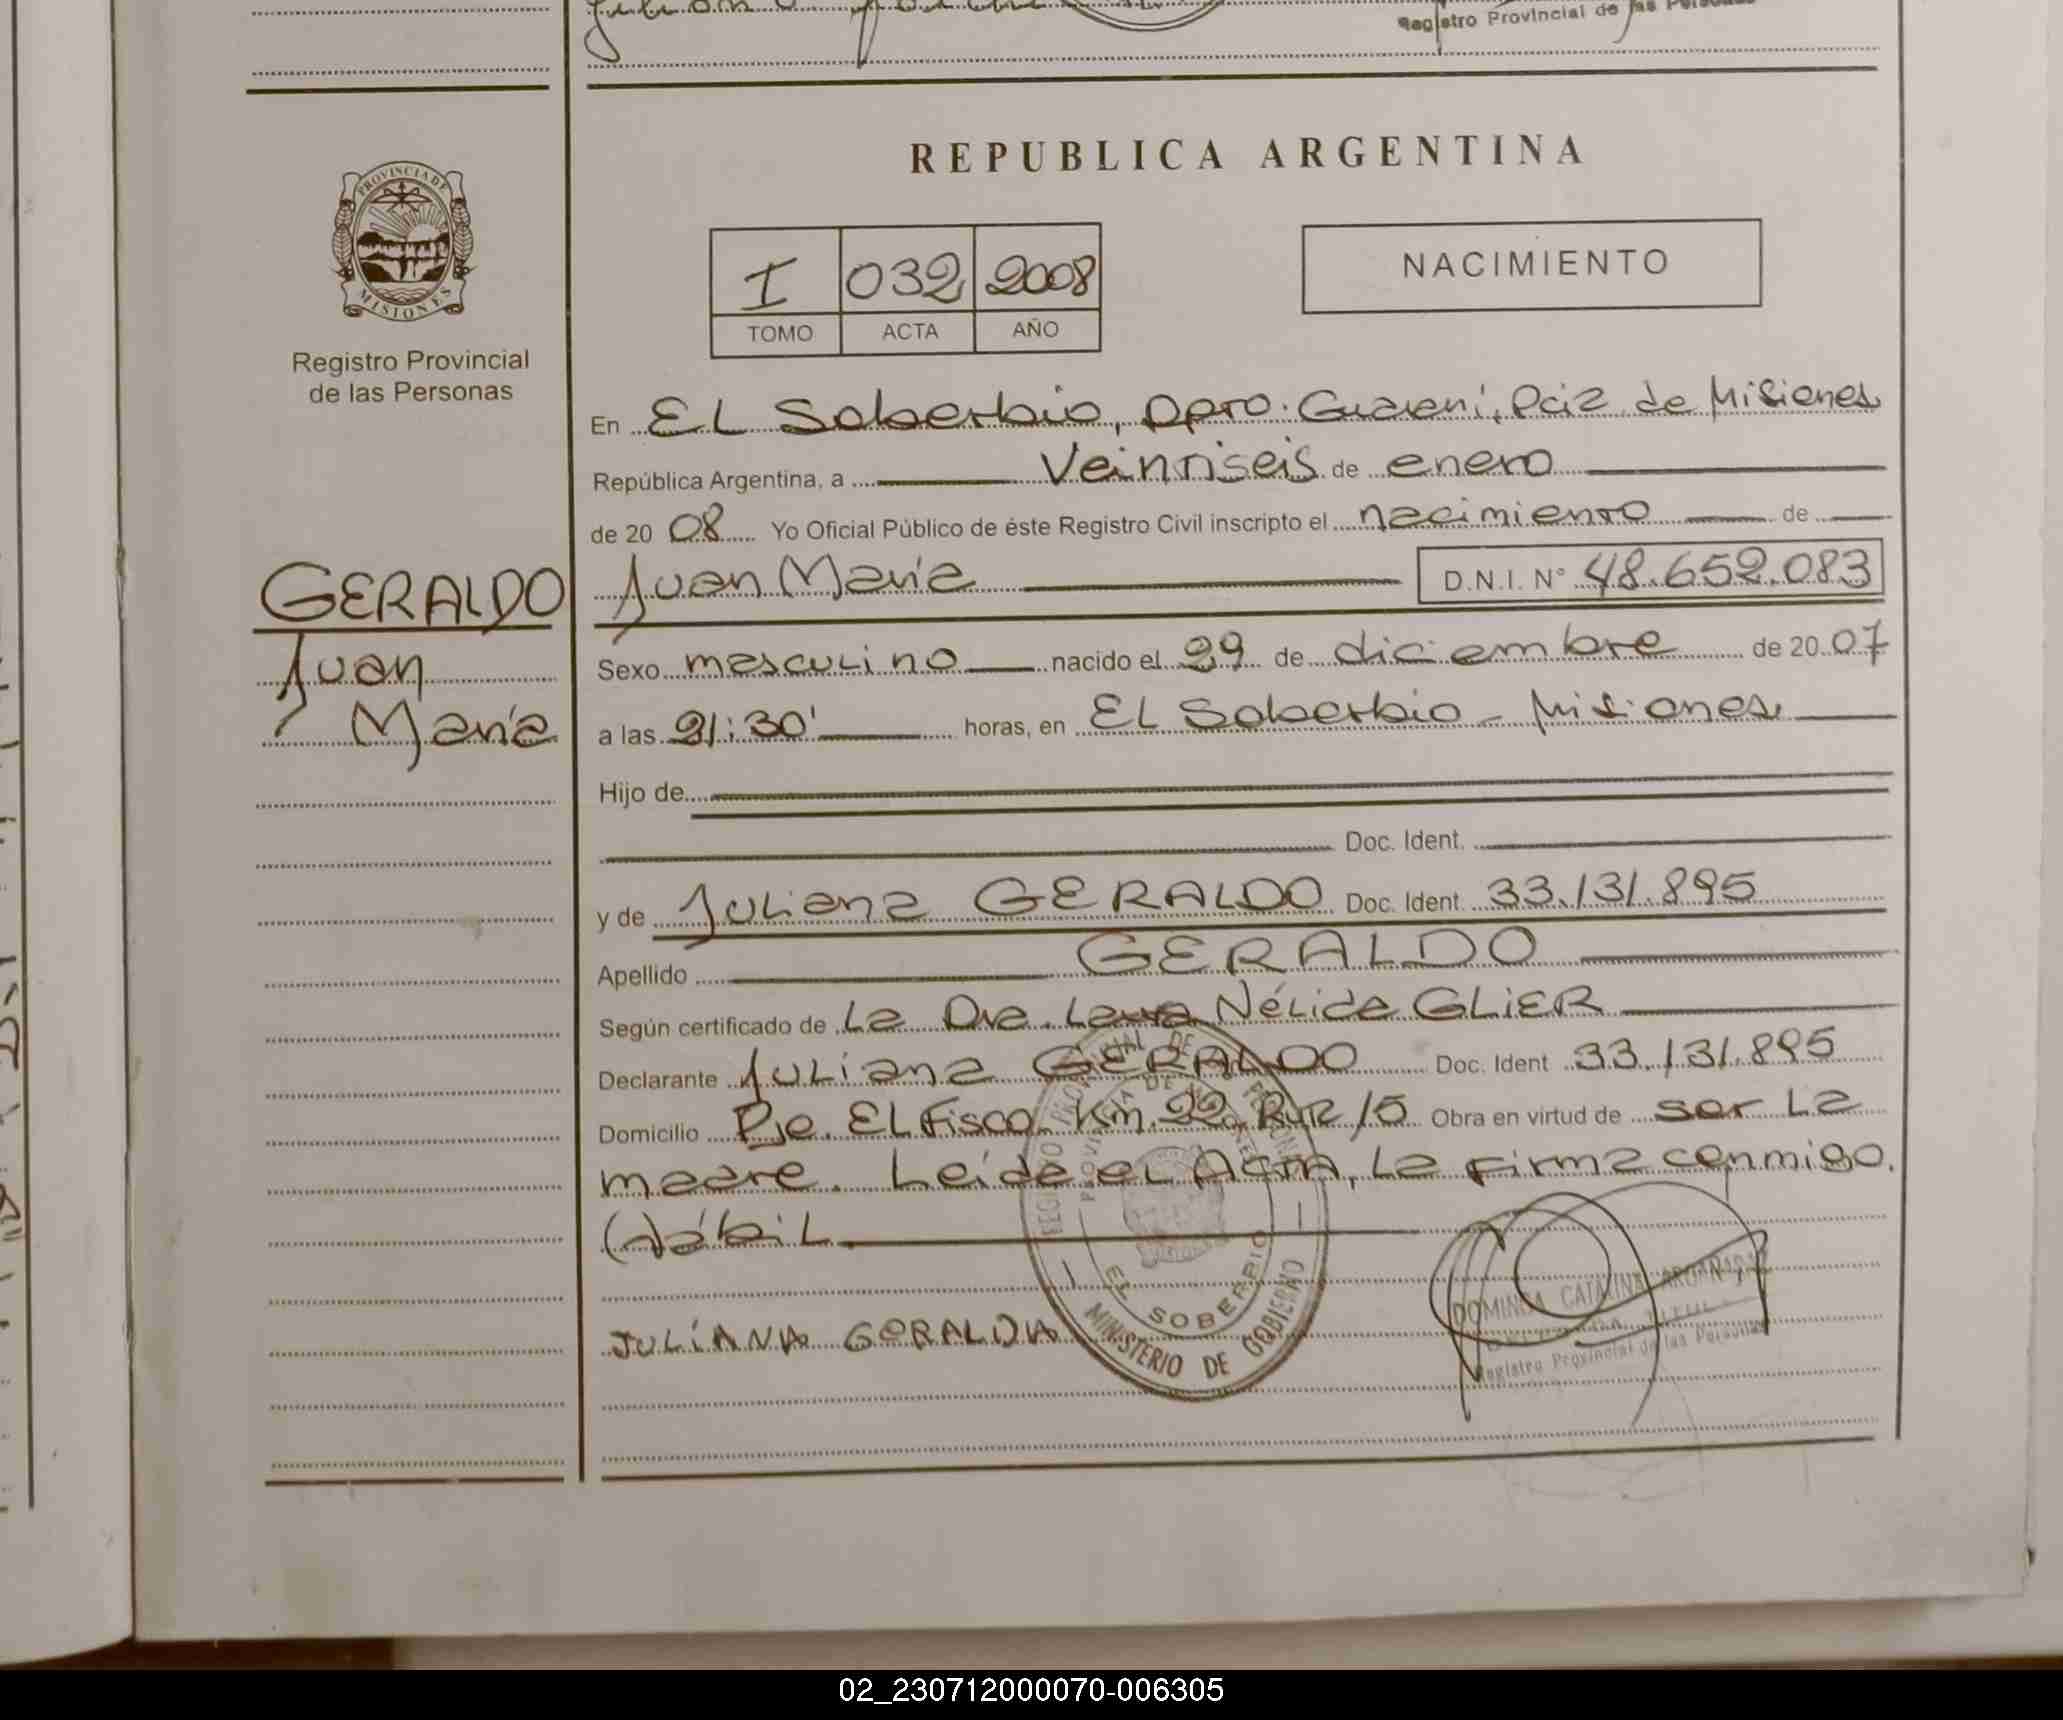 Registro Provincial de las Personas
REPUBLICA ARGENTINA
PROVINCIA DE
MISIONES
Registro Provincial
de las Personas
I 032 2008
TOMO ACTA AÑO
NACIMIENTO
En EL Soberbio, Dpto. Guaraní, Pcia de Misiones
República Argentina, a Veintiseis de enero
de 20 08 Yo Oficial Público de éste Registro Civil inscripto el nacimiento de
GERALDO
Juan
María
Juan María D.N.I. N° 48.652.083
Sexo masculino nacido el 29 de diciembre de 20 07
a las 21:30' horas, en EL Soberbio - Misiones
Hijo de
Doc. Ident.
y de Juliana GERALDO Doc. Ident. 33.131.895
Apellido GERALDO
Según certificado de La Dra. Laura Nélida GLIER
Declarante Juliana GERALDO Doc. Ident 33.131.895
Domicilio Pje. EL Fisco Km. 22 Rur/5 Obra en virtud de ser La
madre. Leída el ACTA, La firma conmigo.
(H)ábil
JULIANA GERALDA
EL SOBERBIO
MINISTERIO DE GOBIERNO
DOMINGA CATALINA
Registro Provincial de las Personas
02_230712000070-006305